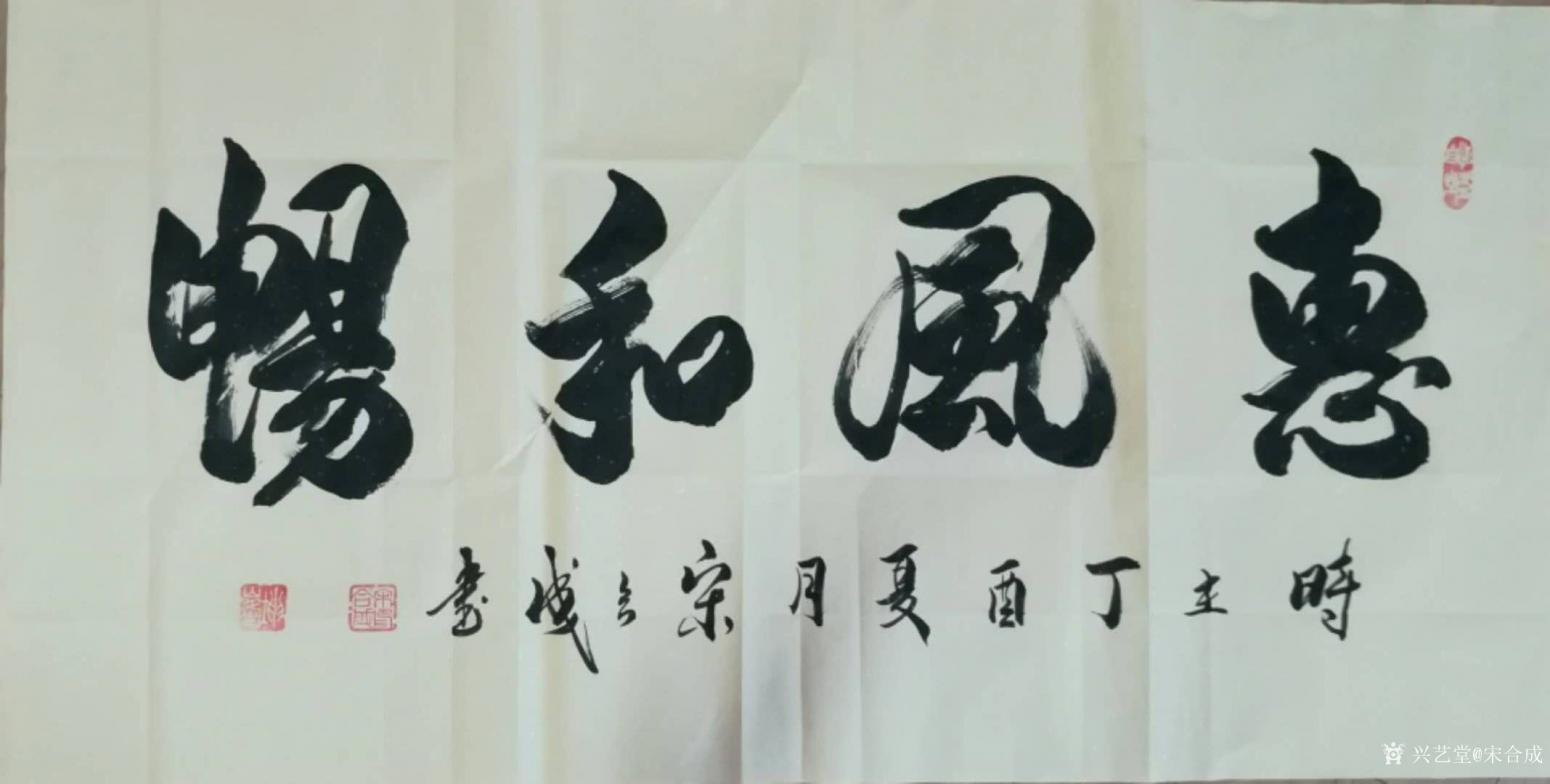 惠風和暢
時在丁酉夏月宋合成書
兴艺堂@宋合成